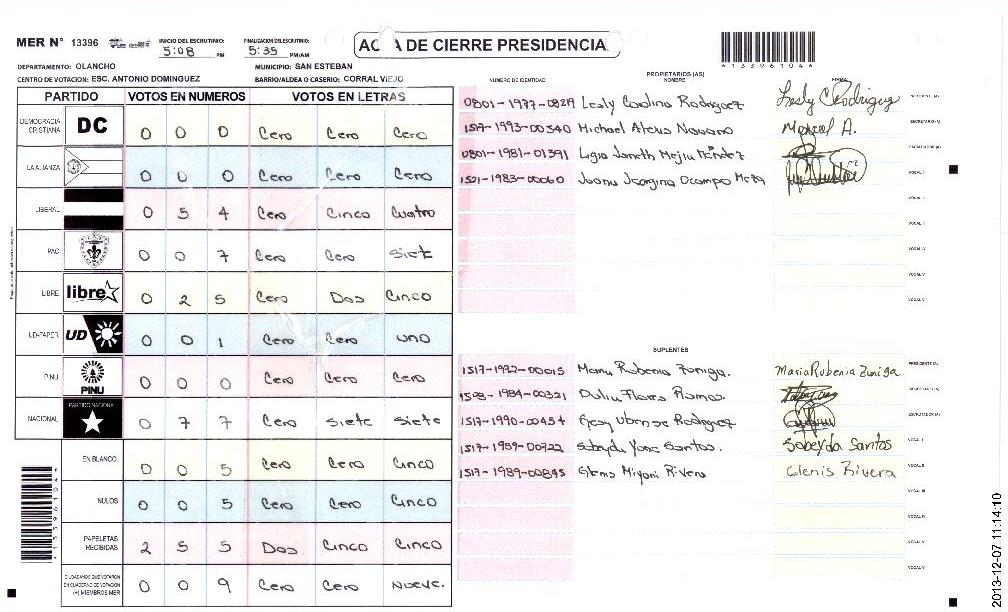 MER N° 13396 INICIO DEL ESCRUTINIO: 5:08 PM FINALIZACION DEL ESCRUTINIO: 5:35 PM/AM
AC A DE CIERRE PRESIDENCIA
4133961044
DEPARTAMENTO: OLANCHO MUNICIPIO: SAN ESTEBAN
CENTRO DE VOTACION: ESC. ANTONIO DOMINGUEZ BARRIO/ALDEA O CASERIO: CORRAL VIEJO
PARTIDO VOTOS EN NUMEROS VOTOS EN LETRAS
DEMOCRACIA CRISTIANA DC 0 0 0 Cero Cero Cero
LA ALIANZA 0 0 0 Cero Cero Cero
LIBERAL 0 5 4 Cero Cinco Cuatro
PAC 0 0 7 Cero Cero Siete
LIBRE libre 0 2 5 Cero Dos Cinco
UD-FAPER UD 0 0 1 Cero Cero uno
PINU PINU 0 0 0 Cero Cero Cero
NACIONAL PARTIDO NACIONAL 0 7 7 Cero Siete Siete
EN BLANCO 0 0 5 Cero Cero Cinco
NULOS 0 0 5 Cero Cero Cinco
PAPELETAS RECIBIDAS 2 5 5 Dos Cinco Cinco
CIUDADANOS QUE VOTARON EN CUADERNO DE VOTACION (+) MIEMBROS MER 0 0 9 Cero Cero Nueve.
PROPIETARIOS (AS)
NUMERO DE IDENTIDAD NOMBRE FIRMA
0801-1977-08219 Lesly Carolina Rodriguez Lesly C Rodriguez
1517-1993-00340 Michael Navarro SECRETARIO (A)
0801-1981-01391 Ligia Janeth Mejia ESCRUTADOR (A)
1521-1983-00060 Ocampo VOCAL I
VOCAL II
VOCAL III
VOCAL IV
VOCAL V
SUPLENTES
1517-1972-00015 Maria Rubenia Zuniga. Maria Rubenia Zuniga PRESIDENTE (A)
1503-1984-00321 Dulia Flores Ramos. SECRETARIO (A)
1517-1990-00454 Rodriguez ESCRUTADOR (A)
1517-1989-00722 Sobeyda Santos. Sobeyda Santos VOCAL I
1517-1989-00845 Glenis Rivera Glenis Rivera VOCAL II
VOCAL III
VOCAL IV
VOCAL V
2013-12-07 11:14:10